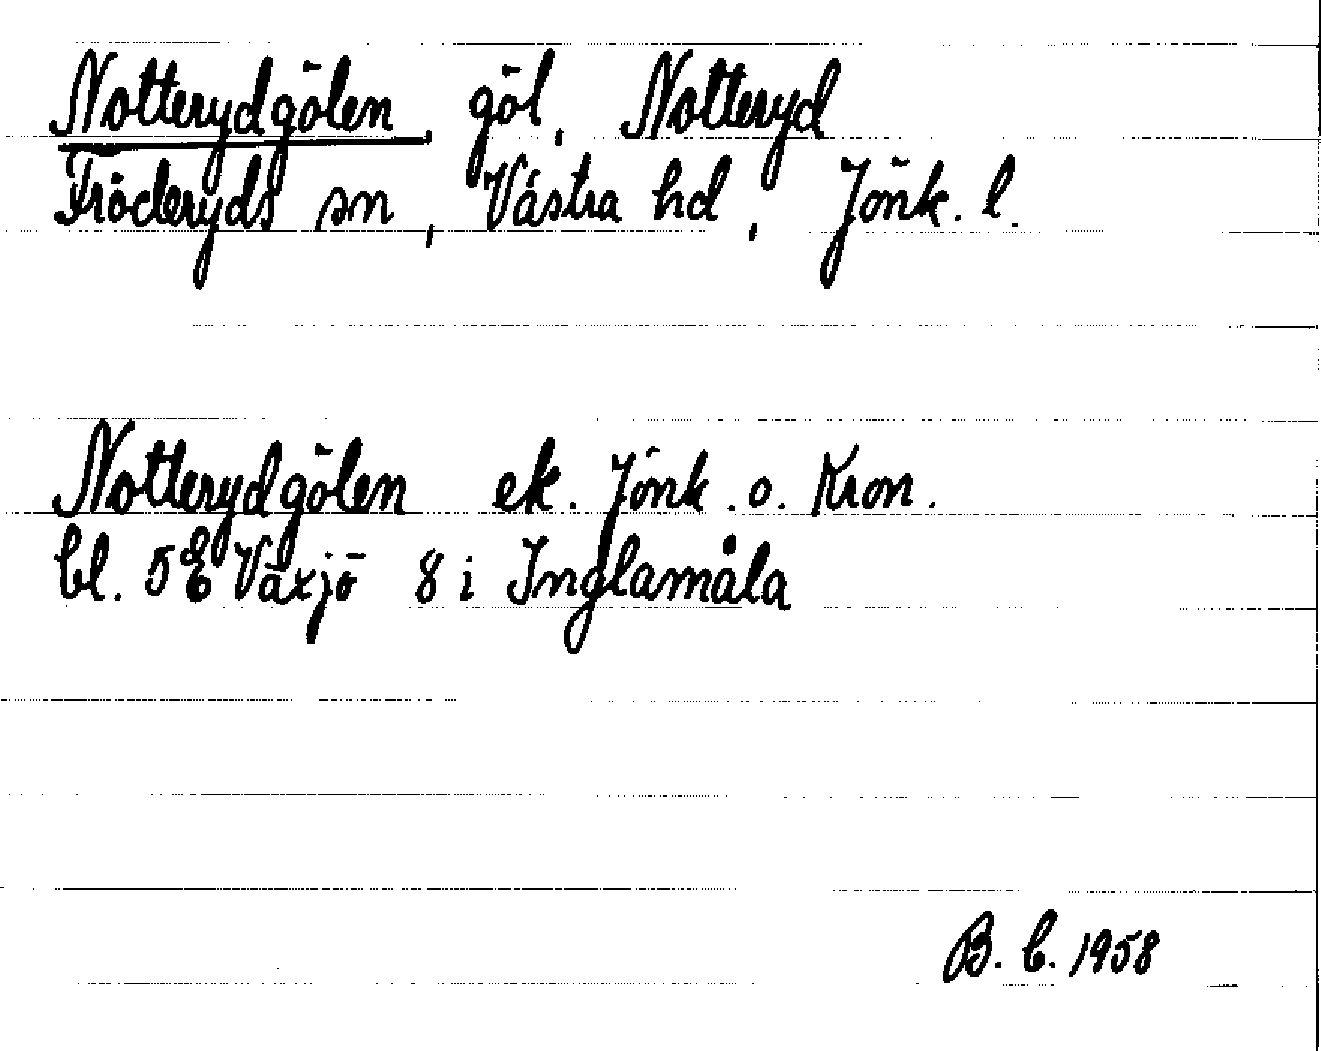 Notterydgölen, göl, Notteryd
Fröderyds sn, Västra hd, Jönk. l.
Notterydgölen ek. Jönk. o. Kron.
bl. 5E Växjö 8 i Inglamåla
B. C. 1958